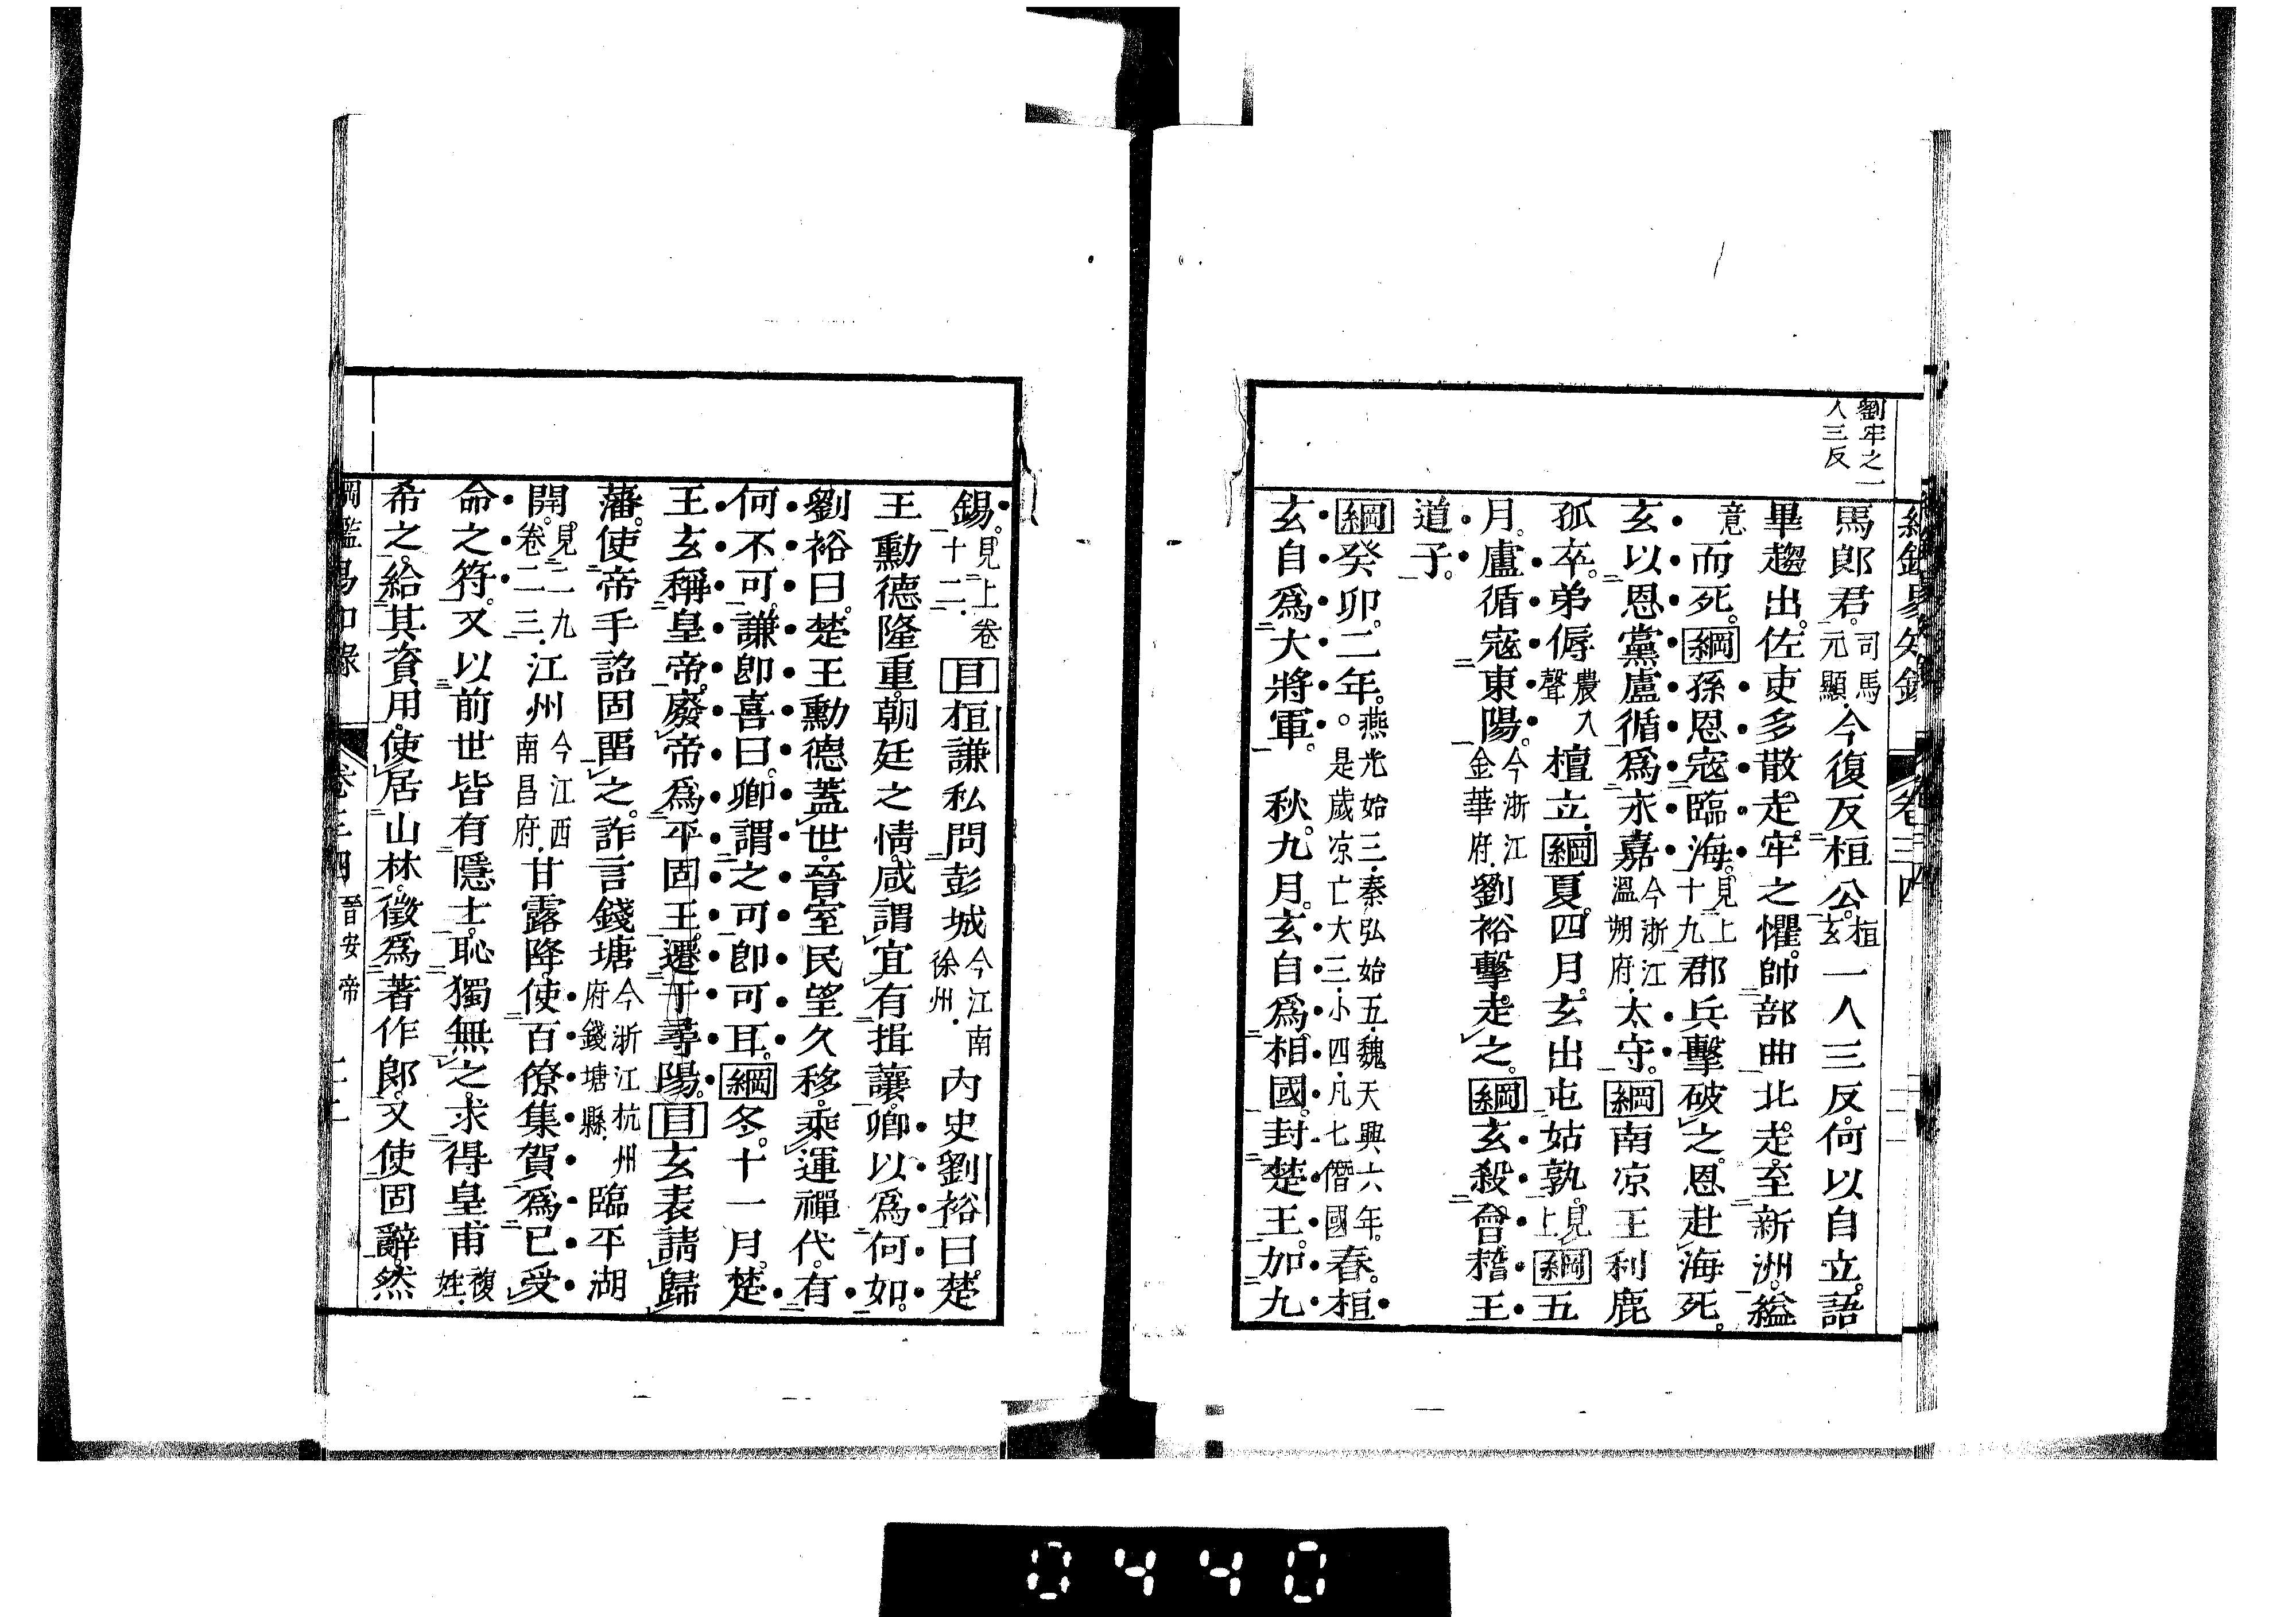 劉牢之一
人三反
馬郎君。司馬元顯．今復反桓公。桓玄一人三反。何以自立。語
畢趨出。佐吏多散走。牢之懼。帥部曲北走。至新洲。縊
意而死。綱孫恩寇臨海。見上十九郡兵擊破之。恩赴海死。
玄以恩黨盧循爲永嘉今浙江溫朔府．太守。綱南凉王利鹿
孤卒。弟傉農入聲檀立．綱夏。四月。玄出屯姑孰。見上．綱五
月。盧循寇東陽。今浙江金華府．劉裕擊走之。綱玄殺會稽王
道子。
綱癸卯。二年。燕光始三．秦弘始五．魏天興六年。○是歲凉亡大三．小四．凡七僭國春。桓
玄自爲大將軍。秋。九月。玄自爲相國。封楚王。加九
錫。見上卷十二．目桓謙私問彭城今江南徐州．内史劉裕曰。楚
王勳德隆重。朝廷之情。咸謂宜有揖讓。卿以爲何如。
劉裕曰。楚王勳德蓋世。晉室民望久移。乘運禪代。有
何不可。謙卽喜曰。卿謂之可卽可耳。綱冬。十一月。楚
王玄稱皇帝。廢帝爲平固王。遷于尋陽。目玄表請歸
藩。使帝手詔固畱之。詐言錢塘今浙江杭州府錢塘縣．臨平湖
開。見二九卷二三．江州今江西南昌府．甘露降。使百僚集賀。爲已受
命之符。又以前世皆有隱士。恥獨無之。求得皇甫複姓．
希之。給其資用。使居山林。徵爲著作郎。又使固辭。然
綱鑑易知錄 卷三四 晉安帝
0440